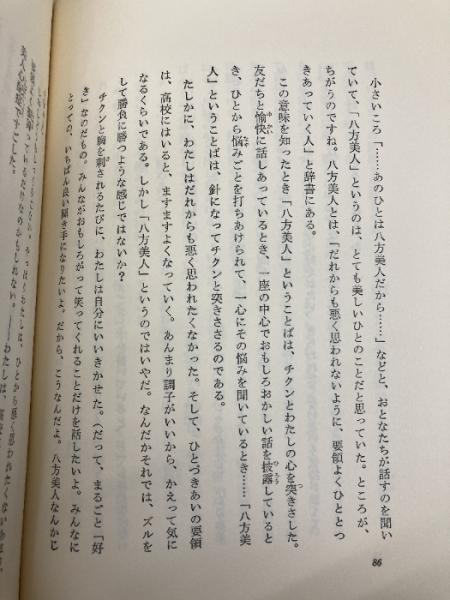 小さいころ「……あのひとは八方美人だから……」などと、おとなたちが話すのを聞い
ていて、「八方美人」というのは、とても美しいひとのことだと思っていた。ところが、
ちがうのですね。八方美人とは、「だれからも悪く思われないように、要領よくひととつ
きあっていく人」と辞書にある。
この意味を知ったとき「八方美人」ということばは、チクンとわたしの心を突きさした。
友だちと愉快に話しあっているとき、一座の中心でおもしろおかしい話を披露していると
き、ひとから悩みごとを打ちあけられて、一心にその悩みを聞いているとき……「八方美
人」ということばは、針になってチクンと突きささるのである。
たしかに、わたしはだれからも悪く思われたくなかった。そして、ひとづきあいの要領
は、高校にはいると、ますますよくなっていく。あんまり調子がいいから、かえって気に
なるくらいである。しかし「八方美人」というのではいやだ。なんだかそれでは、ズルを
して勝負に勝つような感じではないか?
チクンと胸を刺されるたびに、わたしは自分にいいきかせた。（だって、まるごと「好
き」なのだもの。みんながおもしろがって笑ってくれることだけを話したいよ。みんなに
とっての、いちばん良い聞き手になりたいよ。だから、こうなんだよ。八方美人なんかじ
86